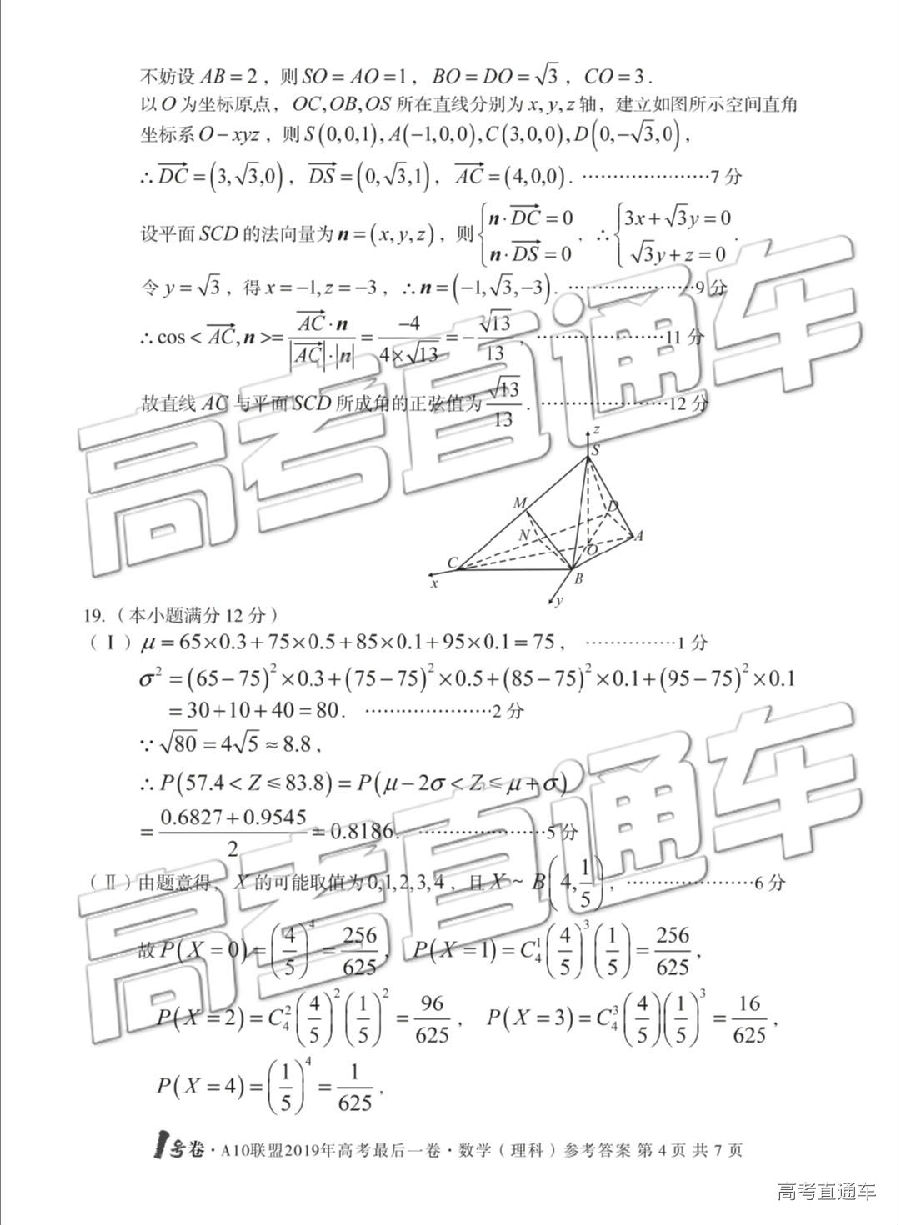 不妨设 AB = 2，则 SO = AO = 1，BO = DO = √3，CO = 3.
以 O 为坐标原点，OC, OB, OS 所在直线分别为 x, y, z 轴，建立如图所示空间直角
坐标系 O − xyz，则 S(0,0,1), A(−1,0,0), C(3,0,0), D(0,−√3,0)，
∴ DC = (3,√3,0)，DS = (0,√3,1)，AC = (4,0,0). …………………7 分
设平面 SCD 的法向量为 n = (x, y, z)，则 { n·DC = 0  n·DS = 0，∴ { 3x + √3y = 0  √3y + z = 0 .
令 y = √3，得 x = −1, z = −3，∴ n = (−1,√3,−3). …………………9 分
∴ cos < AC, n >= AC·n / |AC|·|n| = −4 / 4×√13 = − √13 / 13，…………………11 分
故直线 AC 与平面 SCD 所成角的正弦值为 √13 / 13 . …………………12 分
z
S
M
D
N
A
O
C
B
x
y
19.（本小题满分 12 分）
（Ⅰ）μ = 65×0.3 + 75×0.5 + 85×0.1 + 95×0.1 = 75，……………1 分
σ² = (65−75)²×0.3 + (75−75)²×0.5 + (85−75)²×0.1 + (95−75)²×0.1
= 30 + 10 + 40 = 80. …………………2 分
∵ √80 = 4√5 ≈ 8.8，
∴ P(57.4 < Z ≤ 83.8) = P(μ − 2σ < Z ≤ μ + σ)
= 0.6827 + 0.9545 / 2 = 0.8186. …………………5 分
（Ⅱ）由题意得，X 的可能取值为 0,1,2,3,4，且 X ~ B(4, 1/5)，…………………6 分
故 P(X = 0) = (4/5)⁴ = 256/625，P(X = 1) = C₄¹(4/5)³(1/5) = 256/625，
P(X = 2) = C₄²(4/5)²(1/5)² = 96/625，P(X = 3) = C₄³(4/5)(1/5)³ = 16/625，
P(X = 4) = (1/5)⁴ = 1/625 .
1号卷·A10联盟2019年高考最后一卷·数学（理科）参考答案 第 4 页 共 7 页
高考直通车
高考直通车
高考直通车